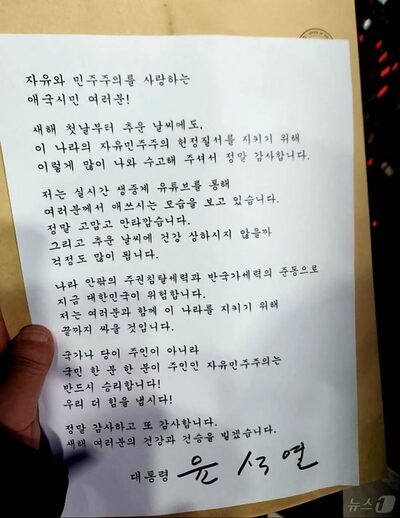 자유와 민주주의를 사랑하는
애국시민 여러분!
새해 첫날부터 추운 날씨에도,
이 나라의 자유민주주의 헌정질서를 지키기 위해
이렇게 많이 나와 수고해 주셔서 정말 감사합니다.
저는 실시간 생중계 유튜브를 통해
여러분께서 애쓰시는 모습을 보고 있습니다.
정말 고맙고 안타깝습니다.
그리고 추운 날씨에 건강 상하시지 않을까
걱정도 많이 됩니다.
나라 안팎의 주권침탈세력과 반국가세력의 준동으로
지금 대한민국이 위험합니다.
저는 여러분과 함께 이 나라를 지키기 위해
끝까지 싸울 것입니다.
국가나 당이 주인이 아니라
국민 한 분 한 분이 주인인 자유민주주의는
반드시 승리합니다!
우리 더 힘을 냅시다!
정말 감사하고 또 감사합니다.
새해 여러분의 건강과 건승을 빌겠습니다.
대통령 윤석열
뉴스1